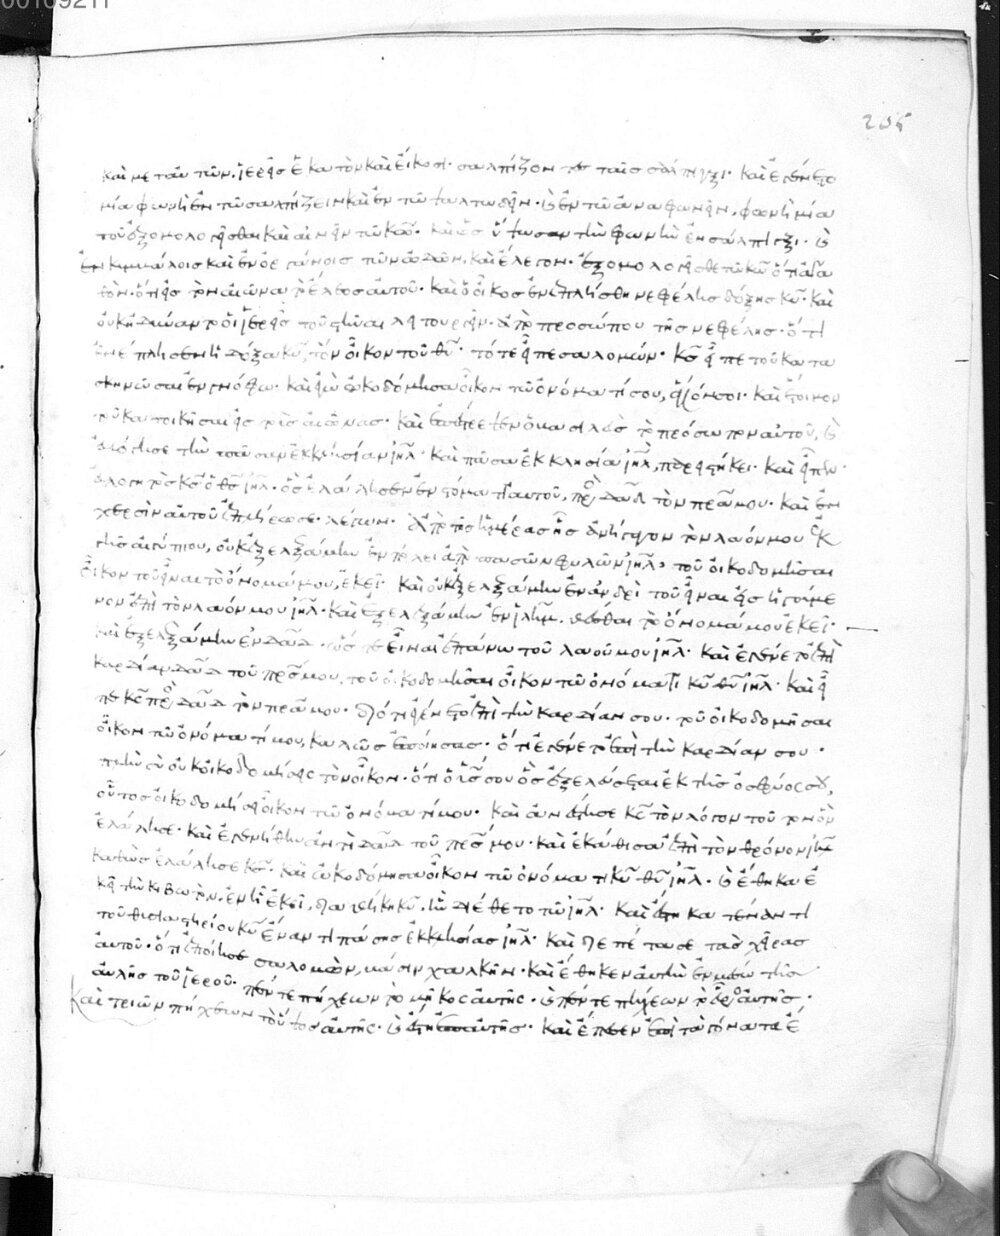 00109211
205
καὶ μετ' αὐτῶν, ἱερεῖς ἑκατὸν καὶ εἴκοσι σαλπίζοντες ταῖς σάλπιγξι· καὶ ἐγένετο
μία φωνὴ ἐν τῶ σαλπίζειν καὶ ἐν τῶ ψαλτωδεῖν· καὶ ἐν τῶ ἀναφωνεῖν, φωνῆ μία
τοῦ ἐξομολογεῖσθαι καὶ αἰνεῖν τῶ κῶ· καὶ ὡς ὕψωσαν τὴν φωνὴν ἐν σάλπιγξι· καὶ
ἐν κυμβάλοις καὶ ἐν ὀργάνοις τῶν ὠδῶν, καὶ ἔλεγον· ἐξομολογεῖσθε τῶ κῶ ὅτι ἀγα
θόν· ὅτι εἰς τὸν αἰῶνα τὸ ἔλεος αὐτοῦ· καὶ ὁ οἶκος ἐνεπλήσθη νεφέλης δόξης κυ· καὶ
οὐκ ἠδύναντο οἱ ἱερεῖς τοῦ στῆναι λειτουργεῖν· ἀπὸ προσώπου τῆς νεφέλης· ὅτι
ἐνέπλησεν ἡ δόξα κυ, τὸν οἶκον τοῦ θυ· τότε εἶπε σαλομών· κς εἶπε τοῦ κατα
σκηνῶσαι ἐν γνόφω· καὶ ἐγὼ ὠκοδόμησα οἶκον τῶ ὀνόματί σου, ἅγιόν σοι· καὶ ἕτοιμον
τοῦ κατοικῆσαι εἰς τοὺς αἰῶνας· καὶ ἐπέστρεψεν ὁ βασιλεὺς τὸ πρόσωπον αὐτοῦ, καὶ
εὐλόγησε τὴν πᾶσαν ἐκκλησίαν ιηλ· καὶ πᾶσα ἐκκλησία ιηλ, παρειστήκει· καὶ εἶπεν·
εὐλογητὸς κς ὁ θς ιηλ· ὃς ἐλάλησεν ἐν στόματι αὐτοῦ, πρὸς δαδ τὸν πρα μου· καὶ ἐν
χερσὶν αὐτοῦ ἐπλήρωσε λέγων· ἀπὸ τῆς ἡμέρας ἧς ἀνήγαγον τὸν λαόν μου ἐκ
γῆς αἰγύπτου, οὐκ ἐξελεξάμην ἐν πόλει ἀπὸ πασῶν φυλῶν ιηλ, τοῦ οἰκοδομῆσαι
οἶκον τοῦ εἶναι τὸ ὄνομά μου, ἐκεῖ· καὶ οὐκ ἐξελεξάμην ἐν ἀνδρὶ τοῦ εἶναι εἰς ἡγούμε
νον ἐπὶ τὸν λαόν μου ιηλ· καὶ ἐξελεξάμην ἐν ιλημ, γενέσθαι τὸ ὄνομά μου ἐκεῖ·
καὶ ἐξελεξάμην ἐν δαδ· ὥστε εἶναι ἐπάνω τοῦ λαοῦ μου ιηλ· καὶ ἐγένετο ἐπὶ
καρδίαν δαδ τοῦ πρς μου, τοῦ οἰκοδομῆσαι οἶκον τῶ ὀνόματι κυ θυ ιηλ· καὶ εἶ
πε κς πρὸς δαδ τὸν πρα μου· διότι ἐγένετο ἐπὶ τὴν καρδίαν σου· τοῦ οἰκοδομῆσαι
οἶκον τῶ ὀνόματί μου, καλῶς ἐποίησας· ὅτι ἐγένετο ἐπὶ τὴν καρδίαν σου·
πλὴν σὺ οὐκ οἰκοδομήσεις τὸν οἶκον· ὅτι ὁ υἱός σου ὃς ἐξελεύσεται ἐκ τῆς ὀσφύος σου,
οὗτος οἰκοδομήσει οἶκον τῶ ὀνόματί μου· καὶ ἀνέστησε κς τὸν λόγον τοῦτον ὃν
ἐλάλησε· καὶ ἐγενήθην ἀντὶ δαδ τοῦ πρς μου· καὶ ἐκάθισα ἐπὶ τὸν θρόνον ιηλ
καθὼς ἐλάλησε κς· καὶ ὠκοδόμησα οἶκον τῶ ὀνόματι κυ θυ ιηλ· καὶ ἔθηκα ἐ
κεῖ τὴν κιβωτόν, ἐν ἧ ἐκεῖ, διαθήκη κυ· ἣν διέθετο τῶ ιηλ· καὶ ἔστη κατέναντι
τοῦ θυσιαστηρίου κυ ἔναντι πάσης ἐκκλησίας ιηλ· καὶ διεπέτασε τὰς χεῖρας
αὐτοῦ· ὅτι ἐποίησε σαλομών, βάσιν χαλκῆν· καὶ ἔθηκεν αὐτὴν ἐν μέσω τῆς
αὐλῆς τοῦ ἱεροῦ· πέντε πήχεων τὸ μῆκος αὐτῆς· καὶ πέντε πήχεων τὸ εὖρος αὐτῆς·
καὶ τριῶν πήχεων τὸ ὕψος αὐτῆς· καὶ ἔστη ἐπ' αὐτῆς· καὶ ἔπεσεν ἐπὶ τὰ γόνατα ἔ